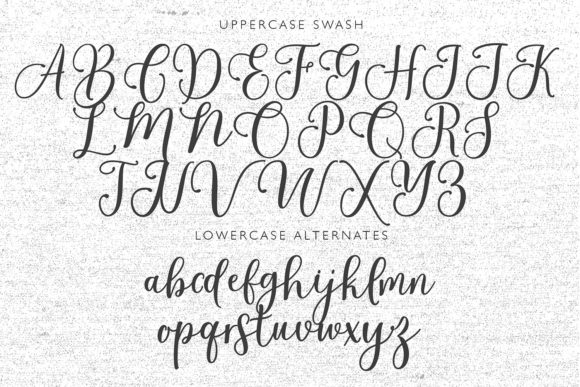 UPPERCASE SWASH
ABCDEFGHIJK
LMNOPQRS
TUVWXYZ
LOWERCASE ALTERNATES
abcdefghijklmn
opqrstuvwxyz